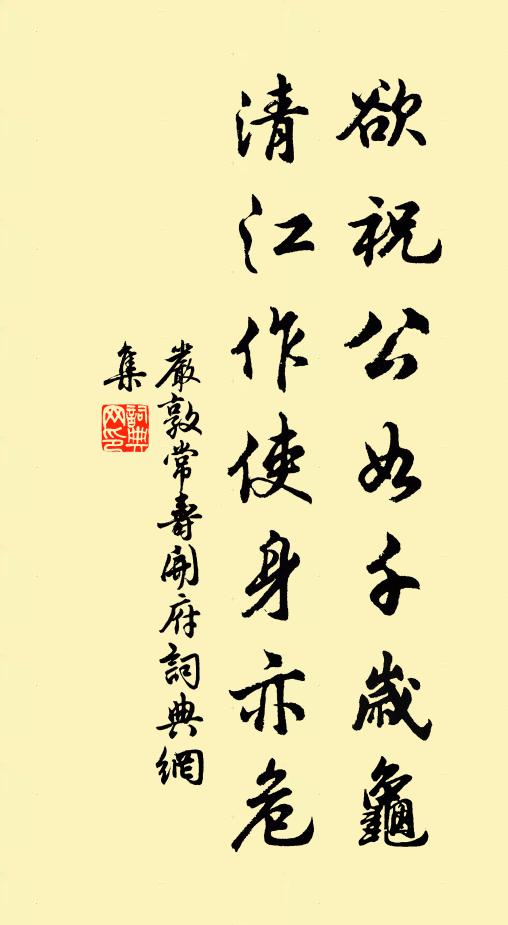 欲祝公如千歲龜
清江作使身亦危
嚴敦常壽開府詞典網
集
詞典网印